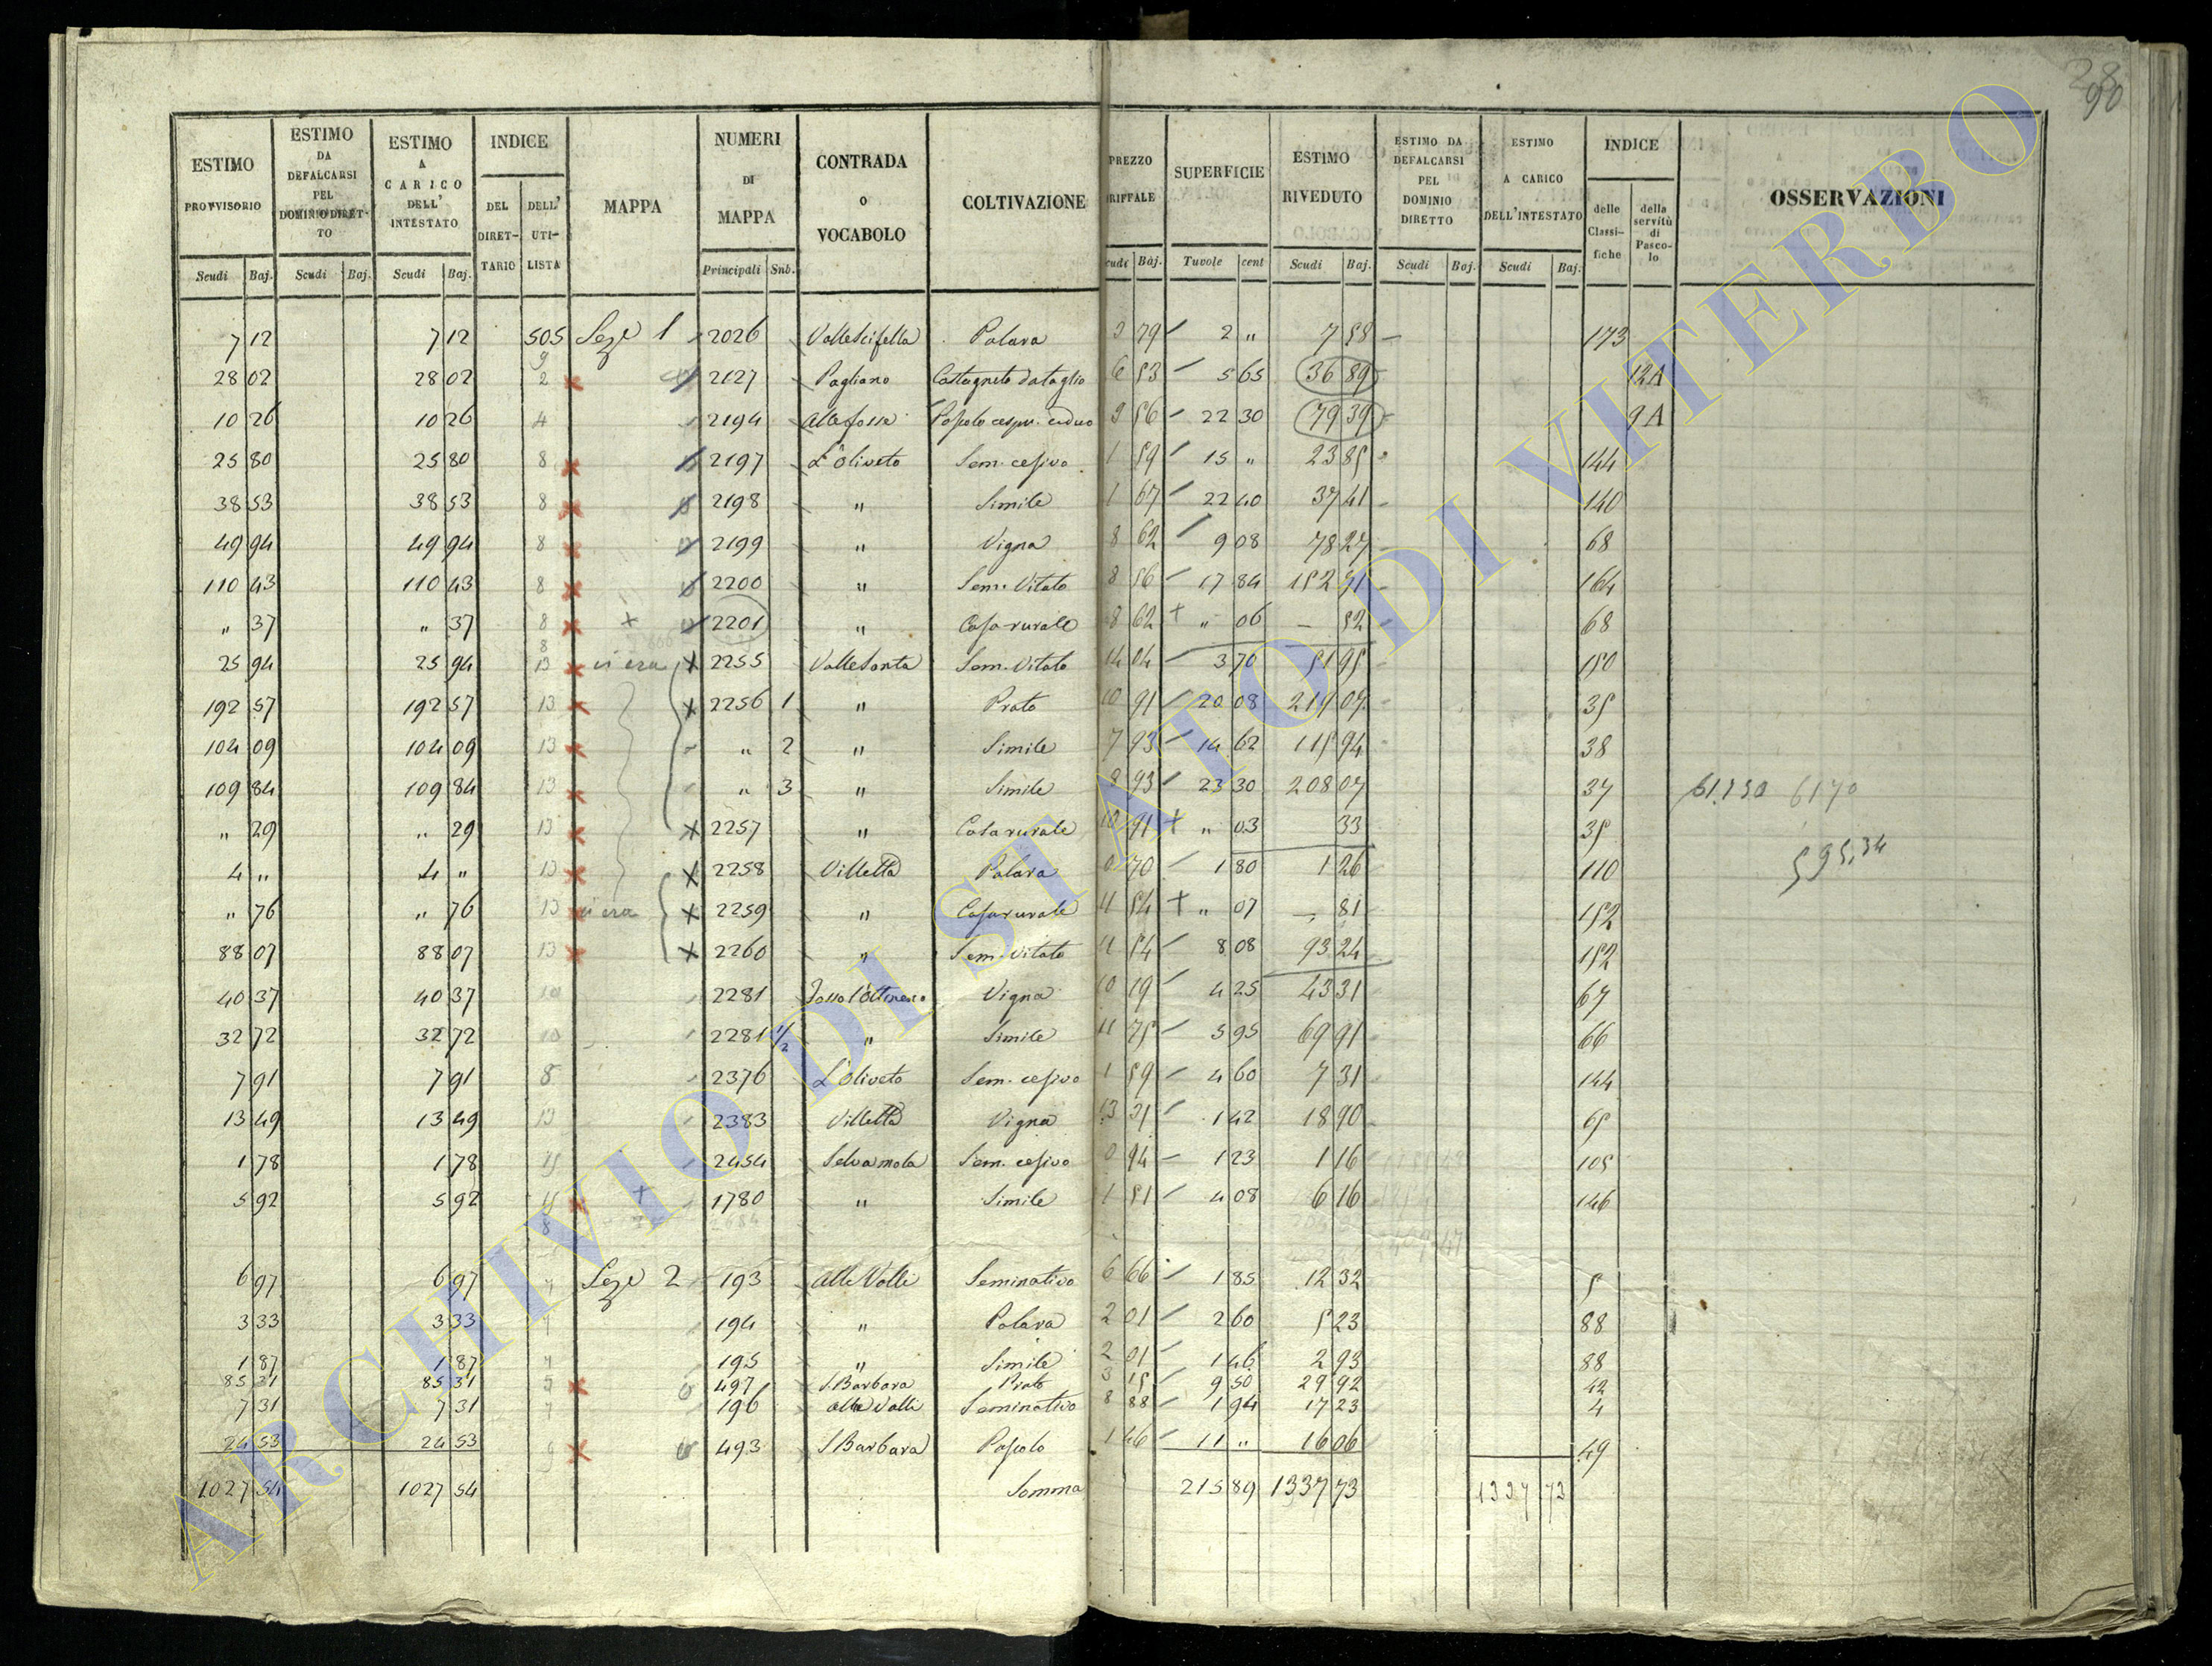 90
ESTIMO PROVVISORIO
ESTIMO DA DEFALCARSI PEL DOMINIO DIRET-TO
ESTIMO A CARICO DELL' INTESTATO
INDICE
DEL DIRET-TARIO
DELL' UTI-LISTA
MAPPA
NUMERI DI MAPPA
CONTRADA O VOCABOLO
COLTIVAZIONE
PREZZO
SUPERFICIE
ESTIMO RIVEDUTO
ESTIMO DA DEFALCARSI PEL DOMINIO DIRETTO
ESTIMO A CARICO DELL'INTESTATO
INDICE
delle Classi-fiche
della servitù di Pasco-lo
OSSERVAZIONI
Scudi Baj. Scudi Baj. Scudi Baj. Principali Snb. Baj. Tuvole cent Scudi Baj. Scudi Baj. Scudi Baj.
7 12 7 12 505 Seze 1 2026 Valle Scifella Palara 79 2 " 7 58 173
28 02 28 02 2 2127 Pagliano Castagneto dataglio 6 53 5 65 36 89 12A
10 26 10 26 4 2194 Alle fosse Pascolo cespu. ceduo 3 56 22 30 79 39 9A
25 80 25 80 8 2197 L'Oliveto Sem. cesivo 1 59 15 " 23 85 144
38 53 38 53 8 2198 " Simile 1 67 22 40 37 41 140
49 94 49 94 8 2199 " Vigna 8 62 9 08 78 27 68
110 43 110 43 8 2200 " Sem. Vitato 8 56 17 84 152 71 164
" 37 " 37 8 2201 " Casa rurale 8 62 " 06 – 52 68
25 94 25 94 13 vi era 2255 Valle Santa Sem. Vitato 14 04 3 70 51 95 150
192 57 192 57 13 2256 1 " Prato 10 91 20 08 219 07 35
104 09 104 09 13 " 2 " Simile 7 93 14 62 115 94 38
109 84 109 84 13 " 3 " Simile 8 93 23 30 208 07 37
" 29 " 29 13 2257 " Casa rurale 10 91 " 03 33 35
595,34
4 " 4 " 13 2258 Villetta Palara 0 70 1 80 1 26 110
" 76 " 76 13 vi era 2259 " Casa rurale 11 54 " 07 – 81 152
88 07 88 07 13 2260 " Sem. Vitato 11 54 8 08 93 24 152
40 37 40 37 10 2281 Vigna 10 19 4 25 43 31 67
32 72 32 72 10 2281 1/2 " Simile 11 75 5 95 69 91 66
7 91 7 91 8 2376 L'Oliveto Sem. cesivo 1 59 4 60 7 31 144
13 49 13 49 13 2383 Villetta Vigna 13 31 1 42 18 90 65
1 78 1 78 2454 Selvamola Sem. cesivo 0 94 1 23 1 16 105
5 92 5 92 1780 " Simile 1 51 4 08 6 16 146
8
6 97 6 97 Seze 2 193 Alle Valli Seminativo 6 66 1 85 12 32 5
3 33 3 33 194 " Palara 2 01 2 60 5 23 88
1 87 1 87 195 " Simile 2 01 1 46 2 93 88
85 31 85 31 497 S. Barbara Prato 3 15 9 50 29 92 42
7 31 7 31 196 Alle Valli Seminativo 8 88 1 94 17 23 4
24 53 24 53 9 493 S. Barbara Pascolo 1 46 11 " 16 06 49
1027 54 1027 54 Somma 215 89 1337 73 1337 73
ARCHIVIO DI STATO DI VITERBO